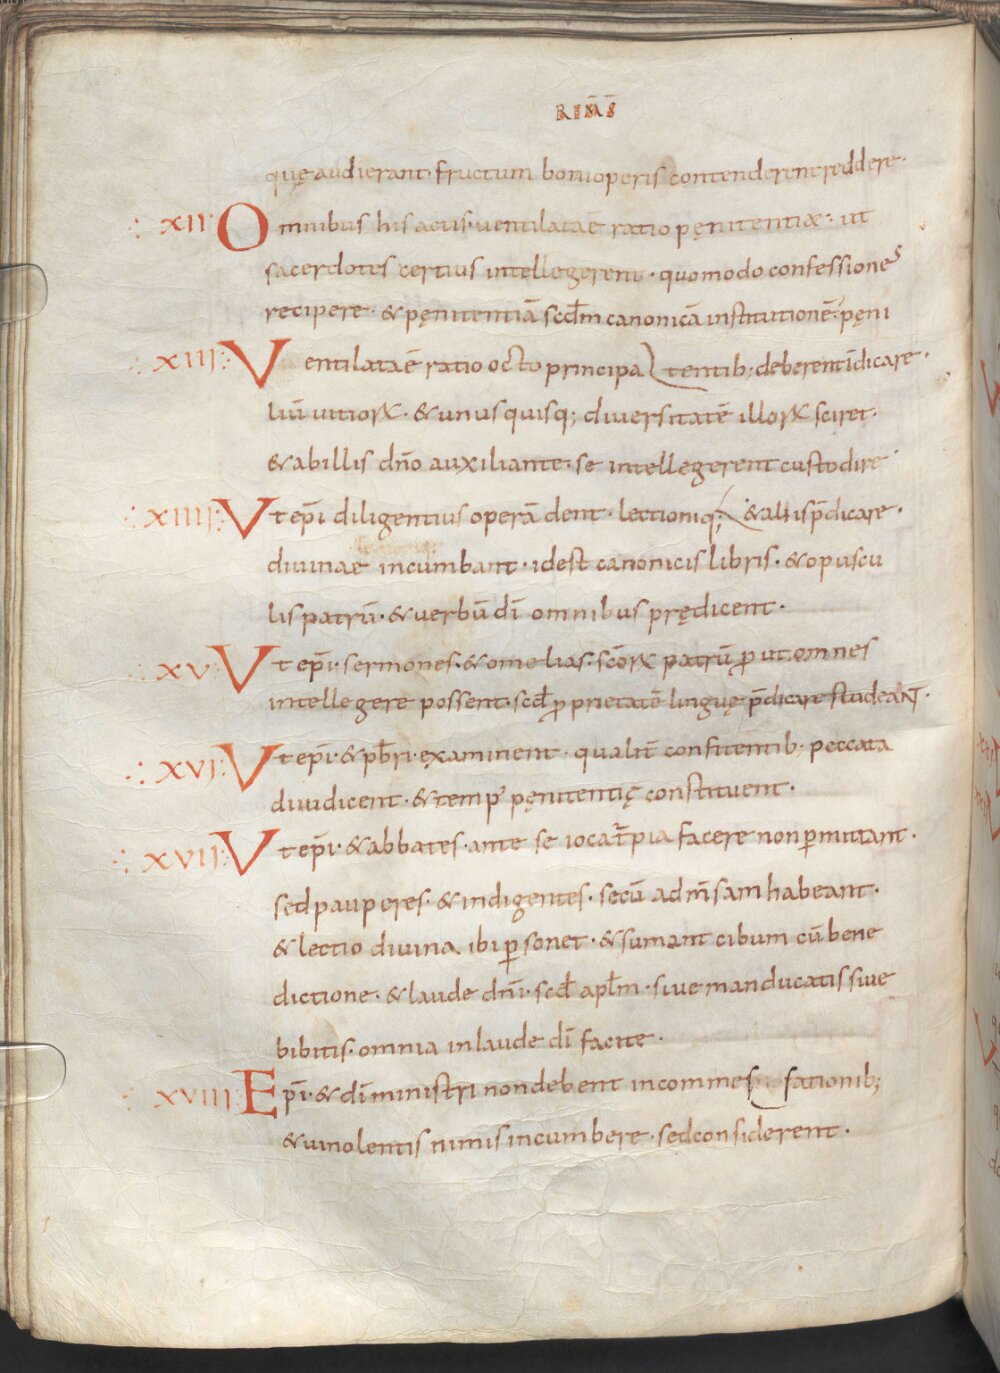 quę audierant· fructum boni operis contenderent reddere·
∴ XII· Omnibus his actis· ventilata ē ratio pęnitentiae· ut
sacerdotes certius intellegerent· quomodo confessiones
recipere· & pęnitentiā scdm̄ canonicā institutionē· pęni
XIII· Ventilata ē ratio octo principa tentib; deberent īdicare·
liū vitiorꝝ· & unusquisq; diversitatē illorꝝ sciret·
& ab illis dn̄o auxiliante· se intellegerent custodire
∴ XIIII· Vt ep̄i diligentius operā dent· lectioniq; & aliis p̄dicare·
divinae incumbant· id est canonicis libris· & opuscu
lis patrū· & verbū dī omnibus prędicent·
∴ XV· Vt ep̄i· sermones· & omelias· sc̄orꝝ patrū ꝓut omnes
intellegere possent· scd̄ ꝓprietatē linguę p̄dicare studeant·
∴ XVI· Vt ep̄i· & pb̄ri· examinent· qualit̄ confitentib; peccata
diiudicent· & temp' pęnitentię constituent·
∴ XVII· Vt ep̄i· & abbates· ante se iocat̄pia facere non ꝑmittant·
sed pauperes· & indigentes· secū ad m̄sam habeant·
& lectio divina ibi ꝑsonet· & sumant cibum cū bene
dictione· & laude dn̄i· scd̄ apl̄m· sive manducatis sive
bibitis· omnia in laude dī facite·
∴ XVIII· Ep̄i· & dī ministri non debent in commes sationib;
& vinolentis nimis incumbere· sed considerent·